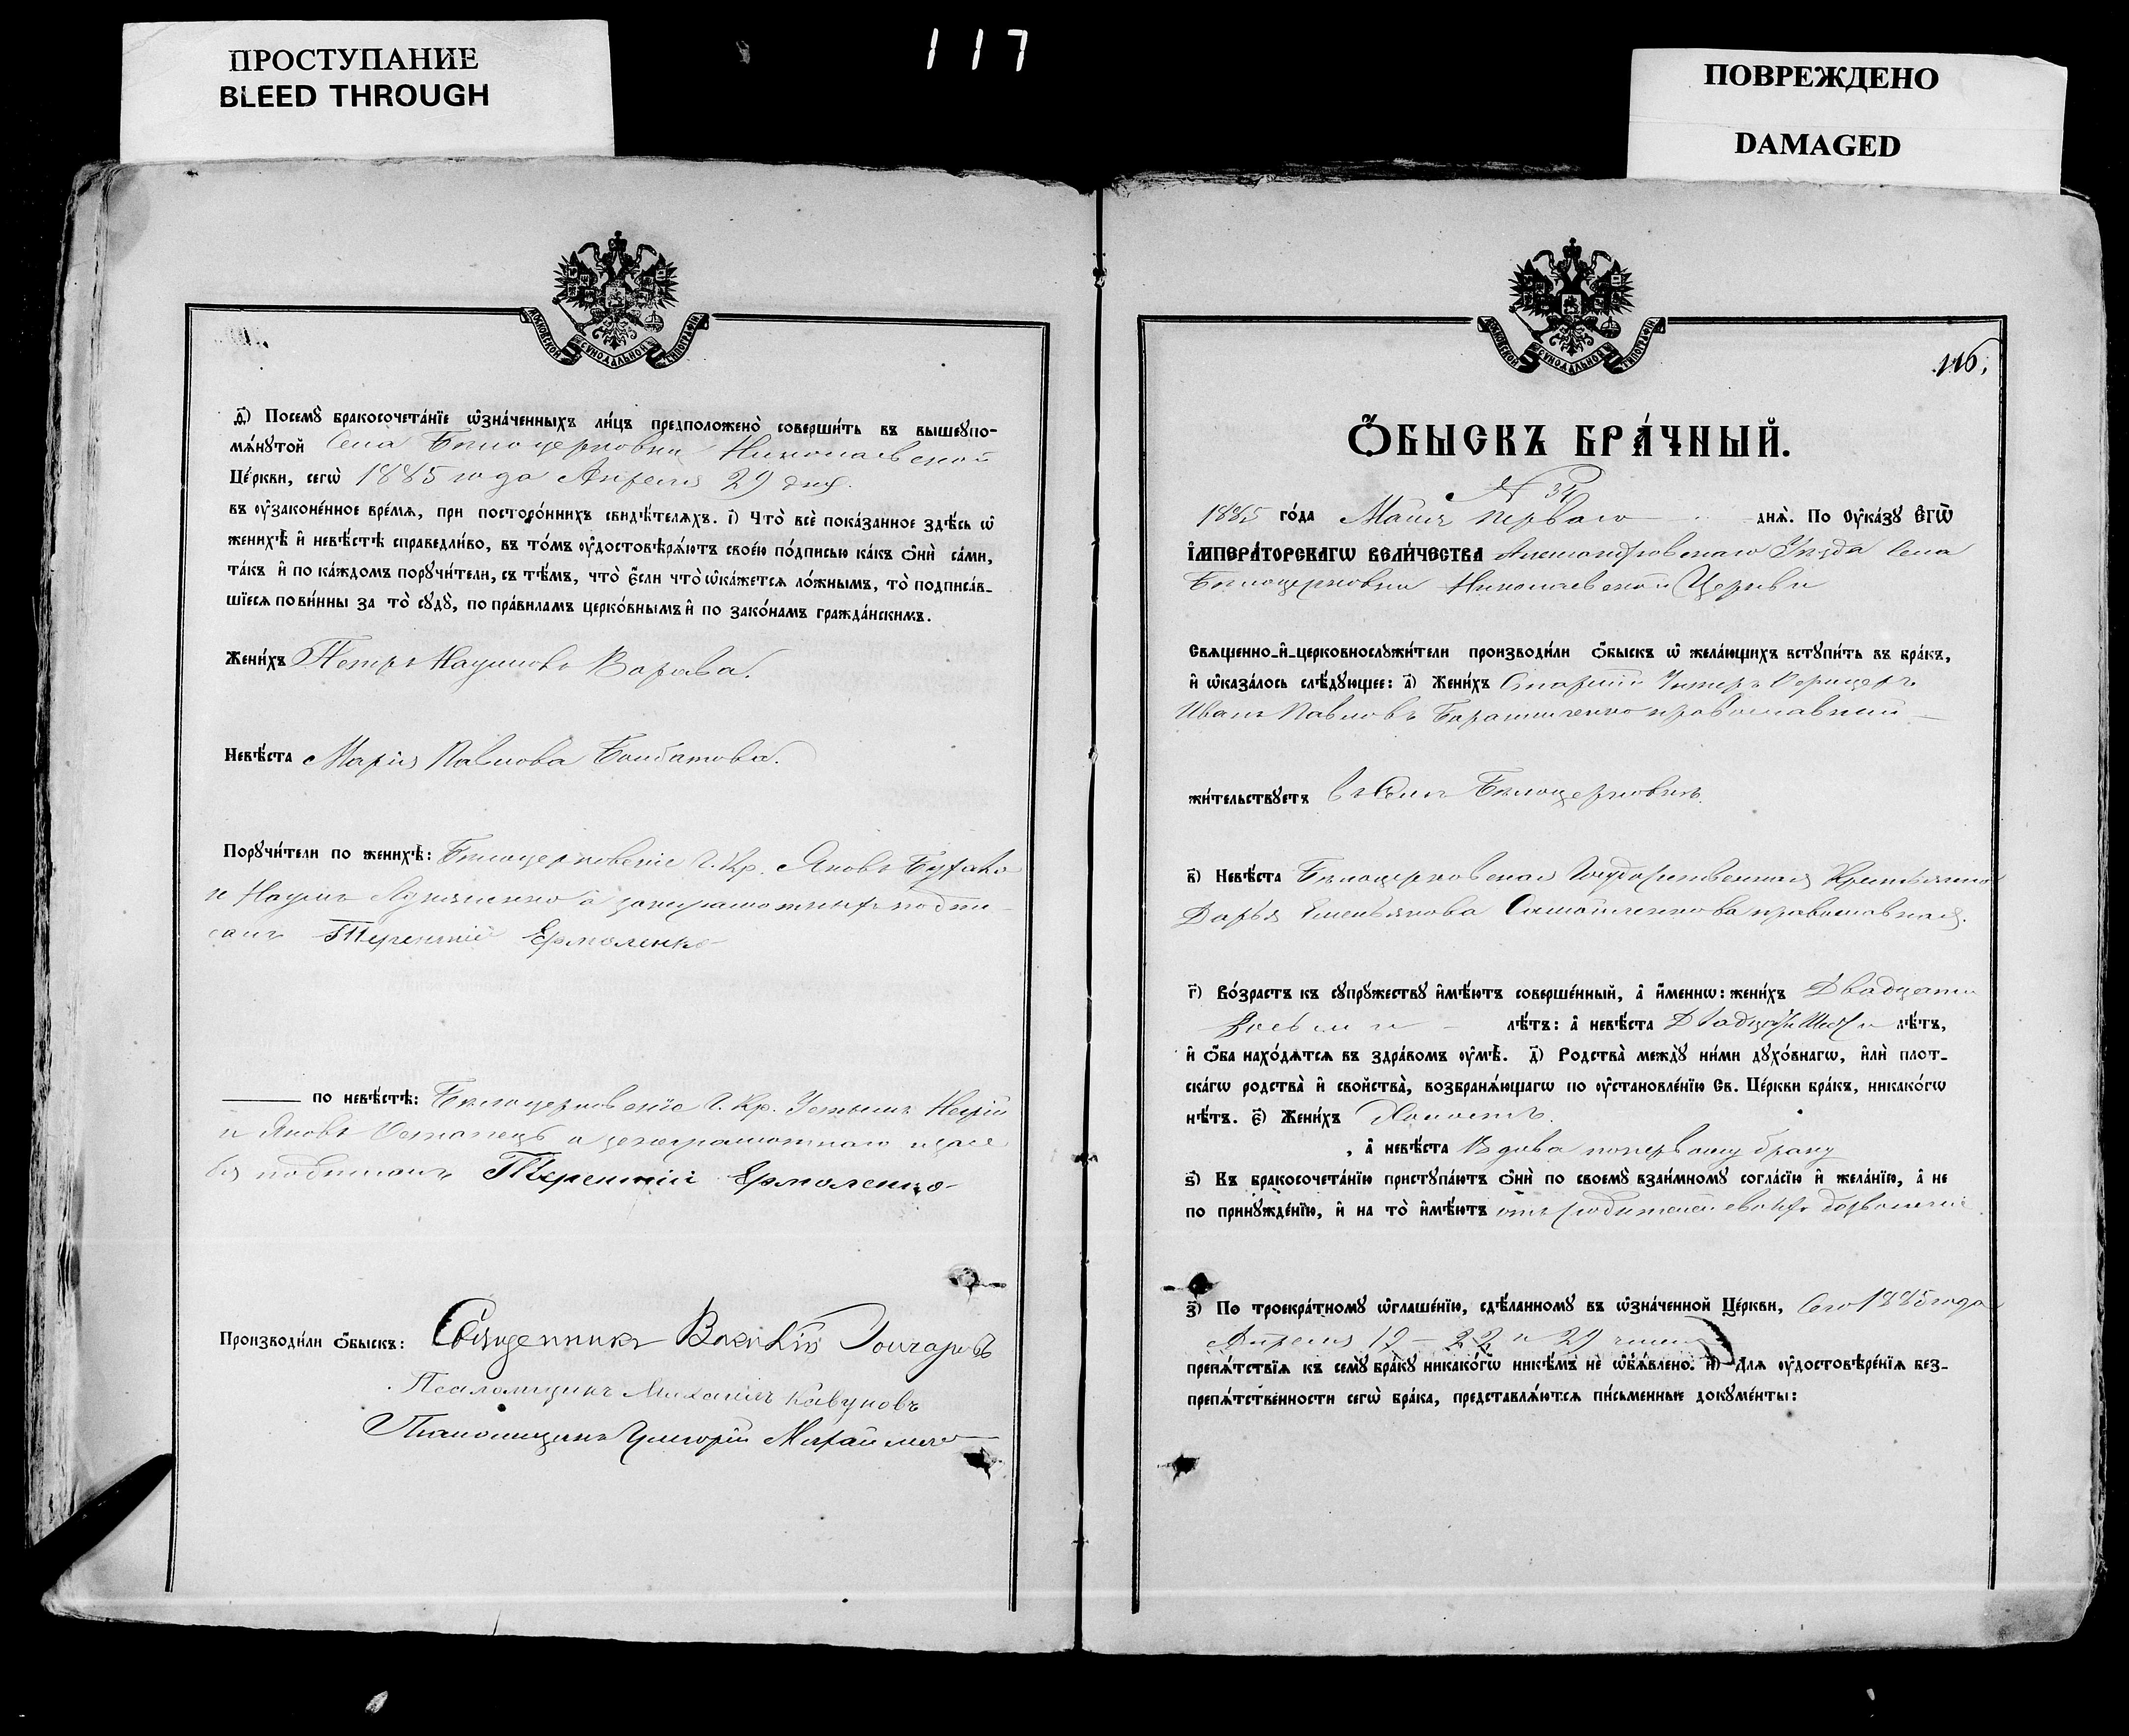 ПРОСТУПАНИЕ
BLEED THROUGH
117
ПОВРЕЖДЕНО
DAMAGED
МОСКОВСКОЙ СѴНОДАЛЬНОЙ ТИПОГРАФІИ
д҃) Посемꙋ̀ бракосочета́нїе ѡ҆зна́ченныхъ ли́цъ предположено̀ соверши́ть въ вышеꙋпо-
мѧ́нꙋтой Села Бѣлоцерковки Николаевской
Це́ркви, сегѡ̀ 1885 года Апреля 29 дня.
въ ᲂу҆законе́нное вре́мѧ, при посторо́ннихъ свидѣ́телѧхъ. і҃) Что̀ всѐ пока́занное здѣ́сь ѡ҆
женихѣ̀ и҆ невѣ́стѣ справедли́во, въ то́мъ ᲂу҆достовѣрѧ́ютъ свое́ю по́дписью ка́къ ѻ҆нѝ са́ми,
та́къ и҆ по ка́ждомъ порꙋчи́тели, съ тѣ́мъ, что̀ є҆́сли что̀ ѡ҆ка́жетсѧ ло́жнымъ, то̀ подписа́в-
шїесѧ пови́нны за то̀ сꙋдꙋ̀, по пра́виламъ церко́внымъ и҆ по зако́намъ гражда́нскимъ.
Жени́хъ Петръ Наумовъ Варава.
Невѣ́ста Марія Павлова Болбатова.
Порꙋчи́тели по женихѣ̀: Бѣлоцерковскіе Г. Кр. Яковъ
и Наумъ Лукяненко а за неграмотныхъ подпи-
салъ Терентій Ермоленко
по невѣ́стѣ: Бѣлоцерковскіе Г. Кр. Устимъ
и Яковъ Остапець а за неграмотнаго и за се
бя подписалъ Терентій Ермоленко
Производи́ли ѻ҆́быскъ: Священникъ Василій Гончаровъ
Псаломщикъ Михаилъ Кавуновъ
Псаломщикъ Григорій
МОСКОВСКОЙ СѴНОДАЛЬНОЙ ТИПОГРАФІИ
116.
Ѻ҆́БЫСКЪ БРА́ЧНЫЙ.
№ 34
1885 го́да Маія перваго днѧ̀. По ᲂу҆ка́зꙋ Є҆гѡ̀
І҆МПЕРА́ТОРСКАГѠ ВЕЛИ́ЧЕСТВА Александровскаго Уѣзда Села
Бѣлоцерковки Николаевской Церкви
Свѧщенно-и҆-церковнослꙋжи́тели производи́ли ѻ҆́быскъ ѡ҆ жела́ющихъ встꙋпи́ть въ бра́къ,
и҆ ѡ҆каза́лось слѣ́дꙋющее: а҃) Жени́хъ Старшій Унтеръ Офицеръ
Иванъ Павловъ православный
жи́тельствꙋетъ въ Селѣ Бѣлоцерковкѣ.
в҃) Невѣ́ста Бѣлоцерковская Государственная Крестьянка
Дарья Емельянова Самойленкова православная.
г҃) Во́зрастъ къ сꙋпрꙋ́жествꙋ и҆мѣ́ютъ соверше́нный, а҆ и҆́меннѡ: жени́хъ Двадцати
Восьми лѣ́тъ: а҆ невѣ́ста Двадцати Шести лѣ́тъ,
и҆ ѻ҆́ба нахо́дѧтсѧ въ здра́вомъ ᲂу҆мѣ̀. д҃) Родства̀ междꙋ̀ ни́ми дꙋхо́внагѡ, и҆лѝ плот-
ска́гѡ родства̀ и҆ сво́йства, возбранѧ́ющагѡ по ᲂу҆становле́нїю Св. Це́ркви бра́къ, никако́гѡ
нѣ́тъ. є҃) Жени́хъ Холостъ.
, а҆ невѣ́ста Вдова по первому браку
ѕ҃) Къ бракосочета́нїю пристꙋпа́ютъ ѻ҆нѝ по своемꙋ̀ взаи́мномꙋ согла́сїю и҆ жела́нїю, а҆ не
по принꙋжде́нїю, и҆ на то̀ и҆мѣ́ютъ отъ родителей своихъ дозволеніе.
з҃) По троекра́тномꙋ ѡ҆глаше́нїю, сдѣ́ланномꙋ въ ѡ҆зна́ченной Це́ркви, Сего 1885 года
Апреля 19 - 22 и 29 чиселъ
препѧ́тствїѧ къ семꙋ̀ бра́кꙋ никако́гѡ никѣ́мъ не ѡ҆б̾ѧ́влено. и҃) Длѧ ᲂу҆достовѣре́нїѧ без-
препѧ́тственности сегѡ̀ бра́ка, представлѧ́ютсѧ пи́сьменные докꙋме́нты: